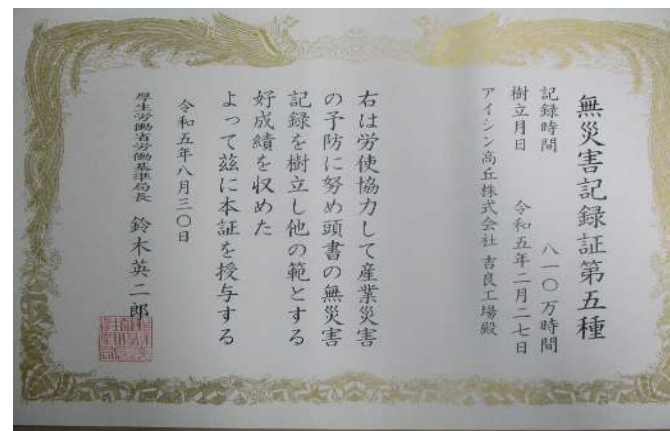 無災害記録証第五種
記録時間 八一〇万時間
樹立月日 令和五年二月二七日
アイシン高丘株式会社 吉良工場殿
右は労使協力して産業災害
の予防に努め頭書の無災害
記録を樹立し他の範とする
好成績を収めた
よって茲に本証を授与する
令和五年八月三〇日
厚生労働省労働基準局長 鈴木英二郎